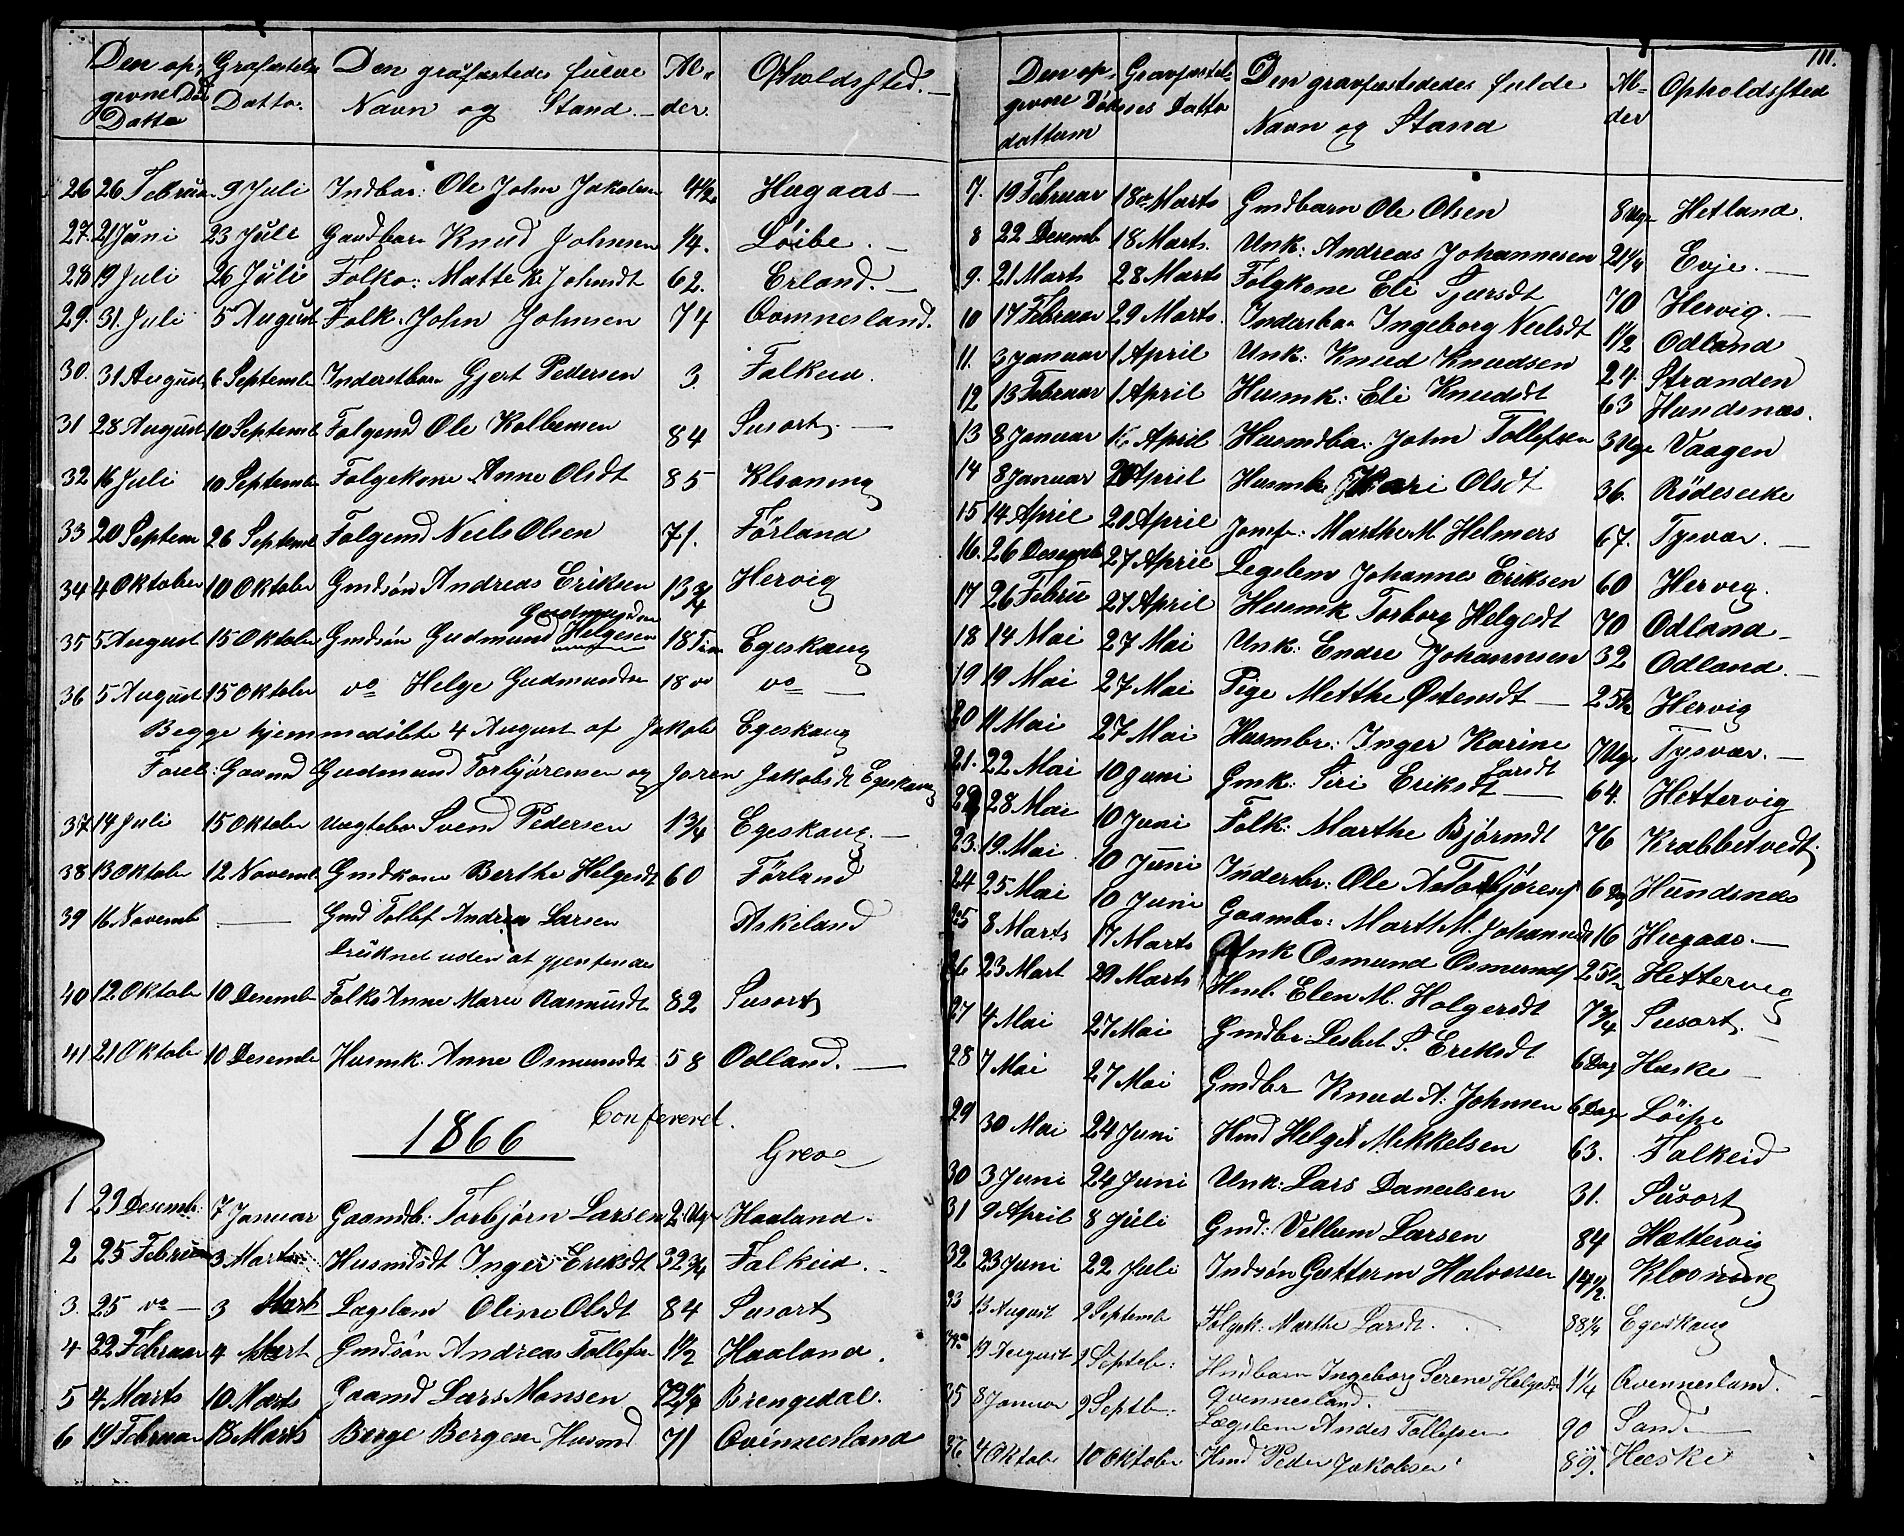 Den op- Gravfæstel- Den gravfæstedes fulde Al- Opholdssted.
givne Død Datto. Navn og Stand. der.
Datto
26 26 Februar 9 Juli Indbar: Ole John Jakobsen 4½ Hugaas
27. 21 Juni 23 Juli Gaardbar Knud Johnsen ¼. Löibe.
28 19 Juli 26 Juli Folko: Matte K: Johnsdt 62. Erland.
29. 31. Juli 5 August Folk. John Johnsen 74
30. 31 August 6 Septembr Inderstbar Gjert Pedersen 3 Falkeid.
31 28 August 10 Septemb Folgemd Ole Kolbensen 84 Susort
32 16 Juli 10 Septembr Folgekone Anne Olsdt 85 Kloaning
33 20 Septem 26 Septembr Folgemd Neils Olsen 71. Förland
34 4 Oktober 10 Oktober Gmdsön Andreas Eriksen 13¾ Hervig
Gudmundsen
35 5 August 15 Oktober Gmdsön Gudmund Helgesen 18 Tim Egeskaug
36 5 August 15 Oktober do Helge Gudmundsn 18 do do
Begge hjemmedøbte 4 August af Jakob Egeskaug
Forel: Gaamd Gudmund Torbjörensen og Joren Jakobsdt Egeskaug
37 14 Juli 15 Oktober Svend Pedersen 1¾ Egeskaug.
38 13 Oktober 12 Novemb Gmdkone Berthe Helgesdt 60 Förland
39 16 Novemb — Gmd Tollef Andreas Larsen Askeland
Druknet uden at gjenfindes
40 12 Oktob 10 Desembr Folko Anne Marie Rasmusdt 82 Susort
41 21 Oktober 10 Desembr Husmk. Anne Osmundsdt 58 Odland.
Confereret.
1866
1 23 Desemb: 7 Januar Gaardb: Torbjörn Larsen 2 Ugr Haaland.
2 25 Februar 3 Marts Husmdsdt Inger Eriksdt 32¾ Falkeid.
3. 25 do 3 Mart Lægslem Oline Olsdt 84 Susort
4 22 Februar 4 Mart Gmdsön Andreas Tollefsen 1½ Haaland.
5 4 Marts 10 Marts Gaamd Lars Monsen Brengedal.
6 19 Februar 18 Marts Berge Bergesen Husmd 71 Qvinnesland
111.
Den op- Gravfæstel- Den gravfæstedes fulde Al- Opholdssted
givne Døds- ses Datto Navn og Stand der
dattum
7. 19 Februar 18 Marts Gmdbarn Ole Olsen 8 Uger Hetland.
8 22 Desemb 18 Marts. Unk: Andreas Johannesen 21¼ Evje.
9. 21 Marts 28 Marts Folgkone Eli Sjursdt 70 Hervig.
10 17 Februar 29 Marts.Indersbar Ingeborg Neelsdt 1½ Odland
11. 3 Januar 1 April Unk: Knud Knudsen 24. Stranden
12 13 Februar 1 April Husmk: Eli Knudsdt 63 Hundsnæs.
13 8 Januar 15 April Husmdba: John Tollefsen 3 Uger Vaagen
14 8 Januar 20 April Husmk Kari Olsdt 36. Rödeseike
15 14 April 20 April Jomfr: Marthe M. Helmers 67. Tysvær.
16. 26 Desemb 27 April Legslem Johannes Eriksen 60 Hervig.
17 26 Februar 27 April Husmk Torborg Helgesdt 70 Odland
18 14 Mai 27 Mai Unk: Endre Johannsen 32 Odland.
19 19 Mai 27 Mai Pige Metthe Östensdt 25½ Hervig
20 11 Mai 27 Mai Husmbr: Inger Karine 7 Uger Tysvær.
Larsdt
21. 22 Mai 10 Juni Gmk: Siri Eriksdt 64. Hettervig
22 28 Mai 10 Juni Folk: Marthe Björnsdt 76 Krabbetvedt
23. 19. Mai 10 JuniIndersbr: Ole A Torbjörens 6 Dag Hundsnes
24 25 Mai 10 Juni Gaambr: Marth M. Johannsdt 16 Hugaas.
25 8 Marts 17 Marts Unk Osmund Osmunds 25½ Hettervig
26 23 Mart 29 Marts Hml. Elen M. Holgersdt 7¾ Susort.
27 4 Mai 27 Mai Gmdbr Lisbet S. Eriksdt 6 Dag Heske
28 7 Mai 27 Mai Gmdbr Knud A: Johnsen 6 Dage Löipe
29 30 Mai 24 Juni Hmd Helge Mikkelsen 63. Falkeid
30 3 Juni 24 Juni Unk: Lars Danielsen 31. Susort
31 9 April 8 Juli Gmd: Villum Larsen 84 Hættervig
32 23 Juni 22 Juli Indsön Guttorm Halvorsen 14½ Klooning
33 13 August 2 Septemb Folgek: Marthe Larsdt. 88¼ Egeskaug
34 19 August 2 Septeb: Hmdbarn Ingeborg Serene Helgesdt 1¼ Qvennesland.
Qvennesland.
35 8 Januar 2 Septbr: Lægslem Andes Tollefsen 90 Sand
36. 4 Oktobr 10 Oktober Hmd Peder Jakobsen 89. Heske